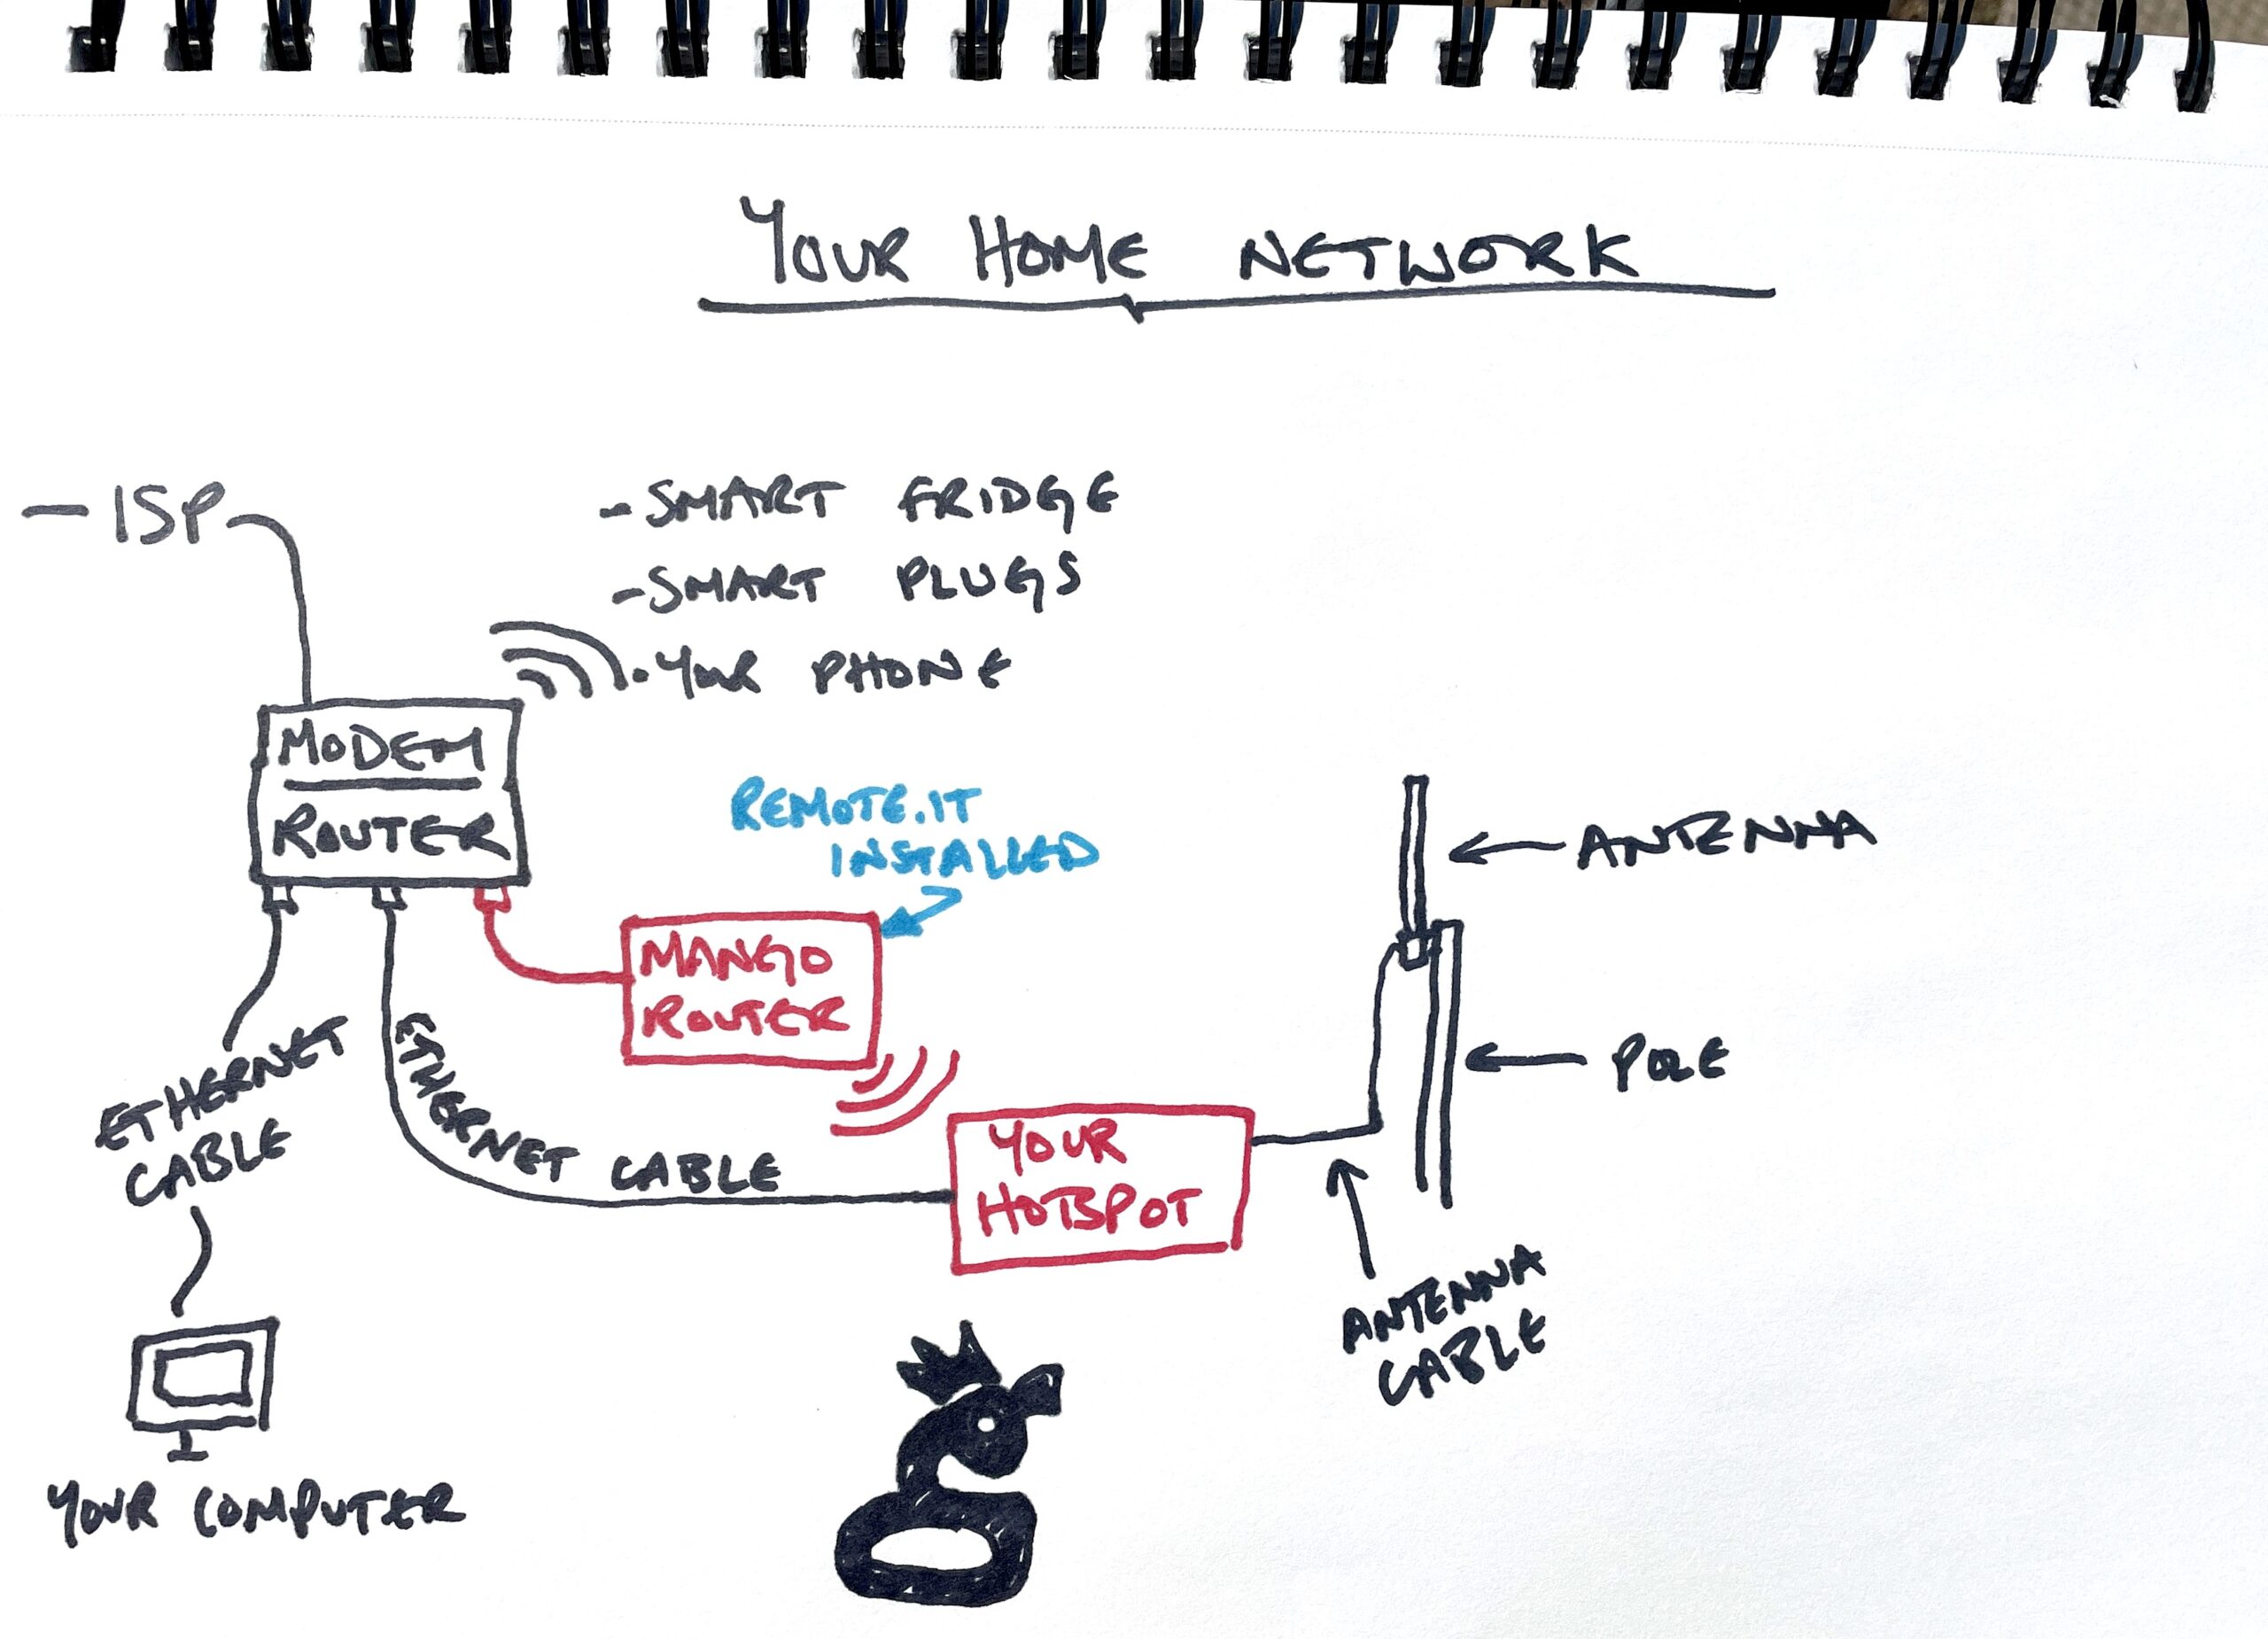 YOUR HOME NETWORK
-ISP
-SMART FRIDGE
-SMART PLUGS
.YOUR PHONE
MODEM
ROUTER
REMOTE.IT
INSTALLED
MANGO
ROUTER
ANTENNA
POLE
ETHERNET
CABLE
ETHERNET CABLE
YOUR
HOTSPOT
ANTENNA
CABLE
YOUR COMPUTER